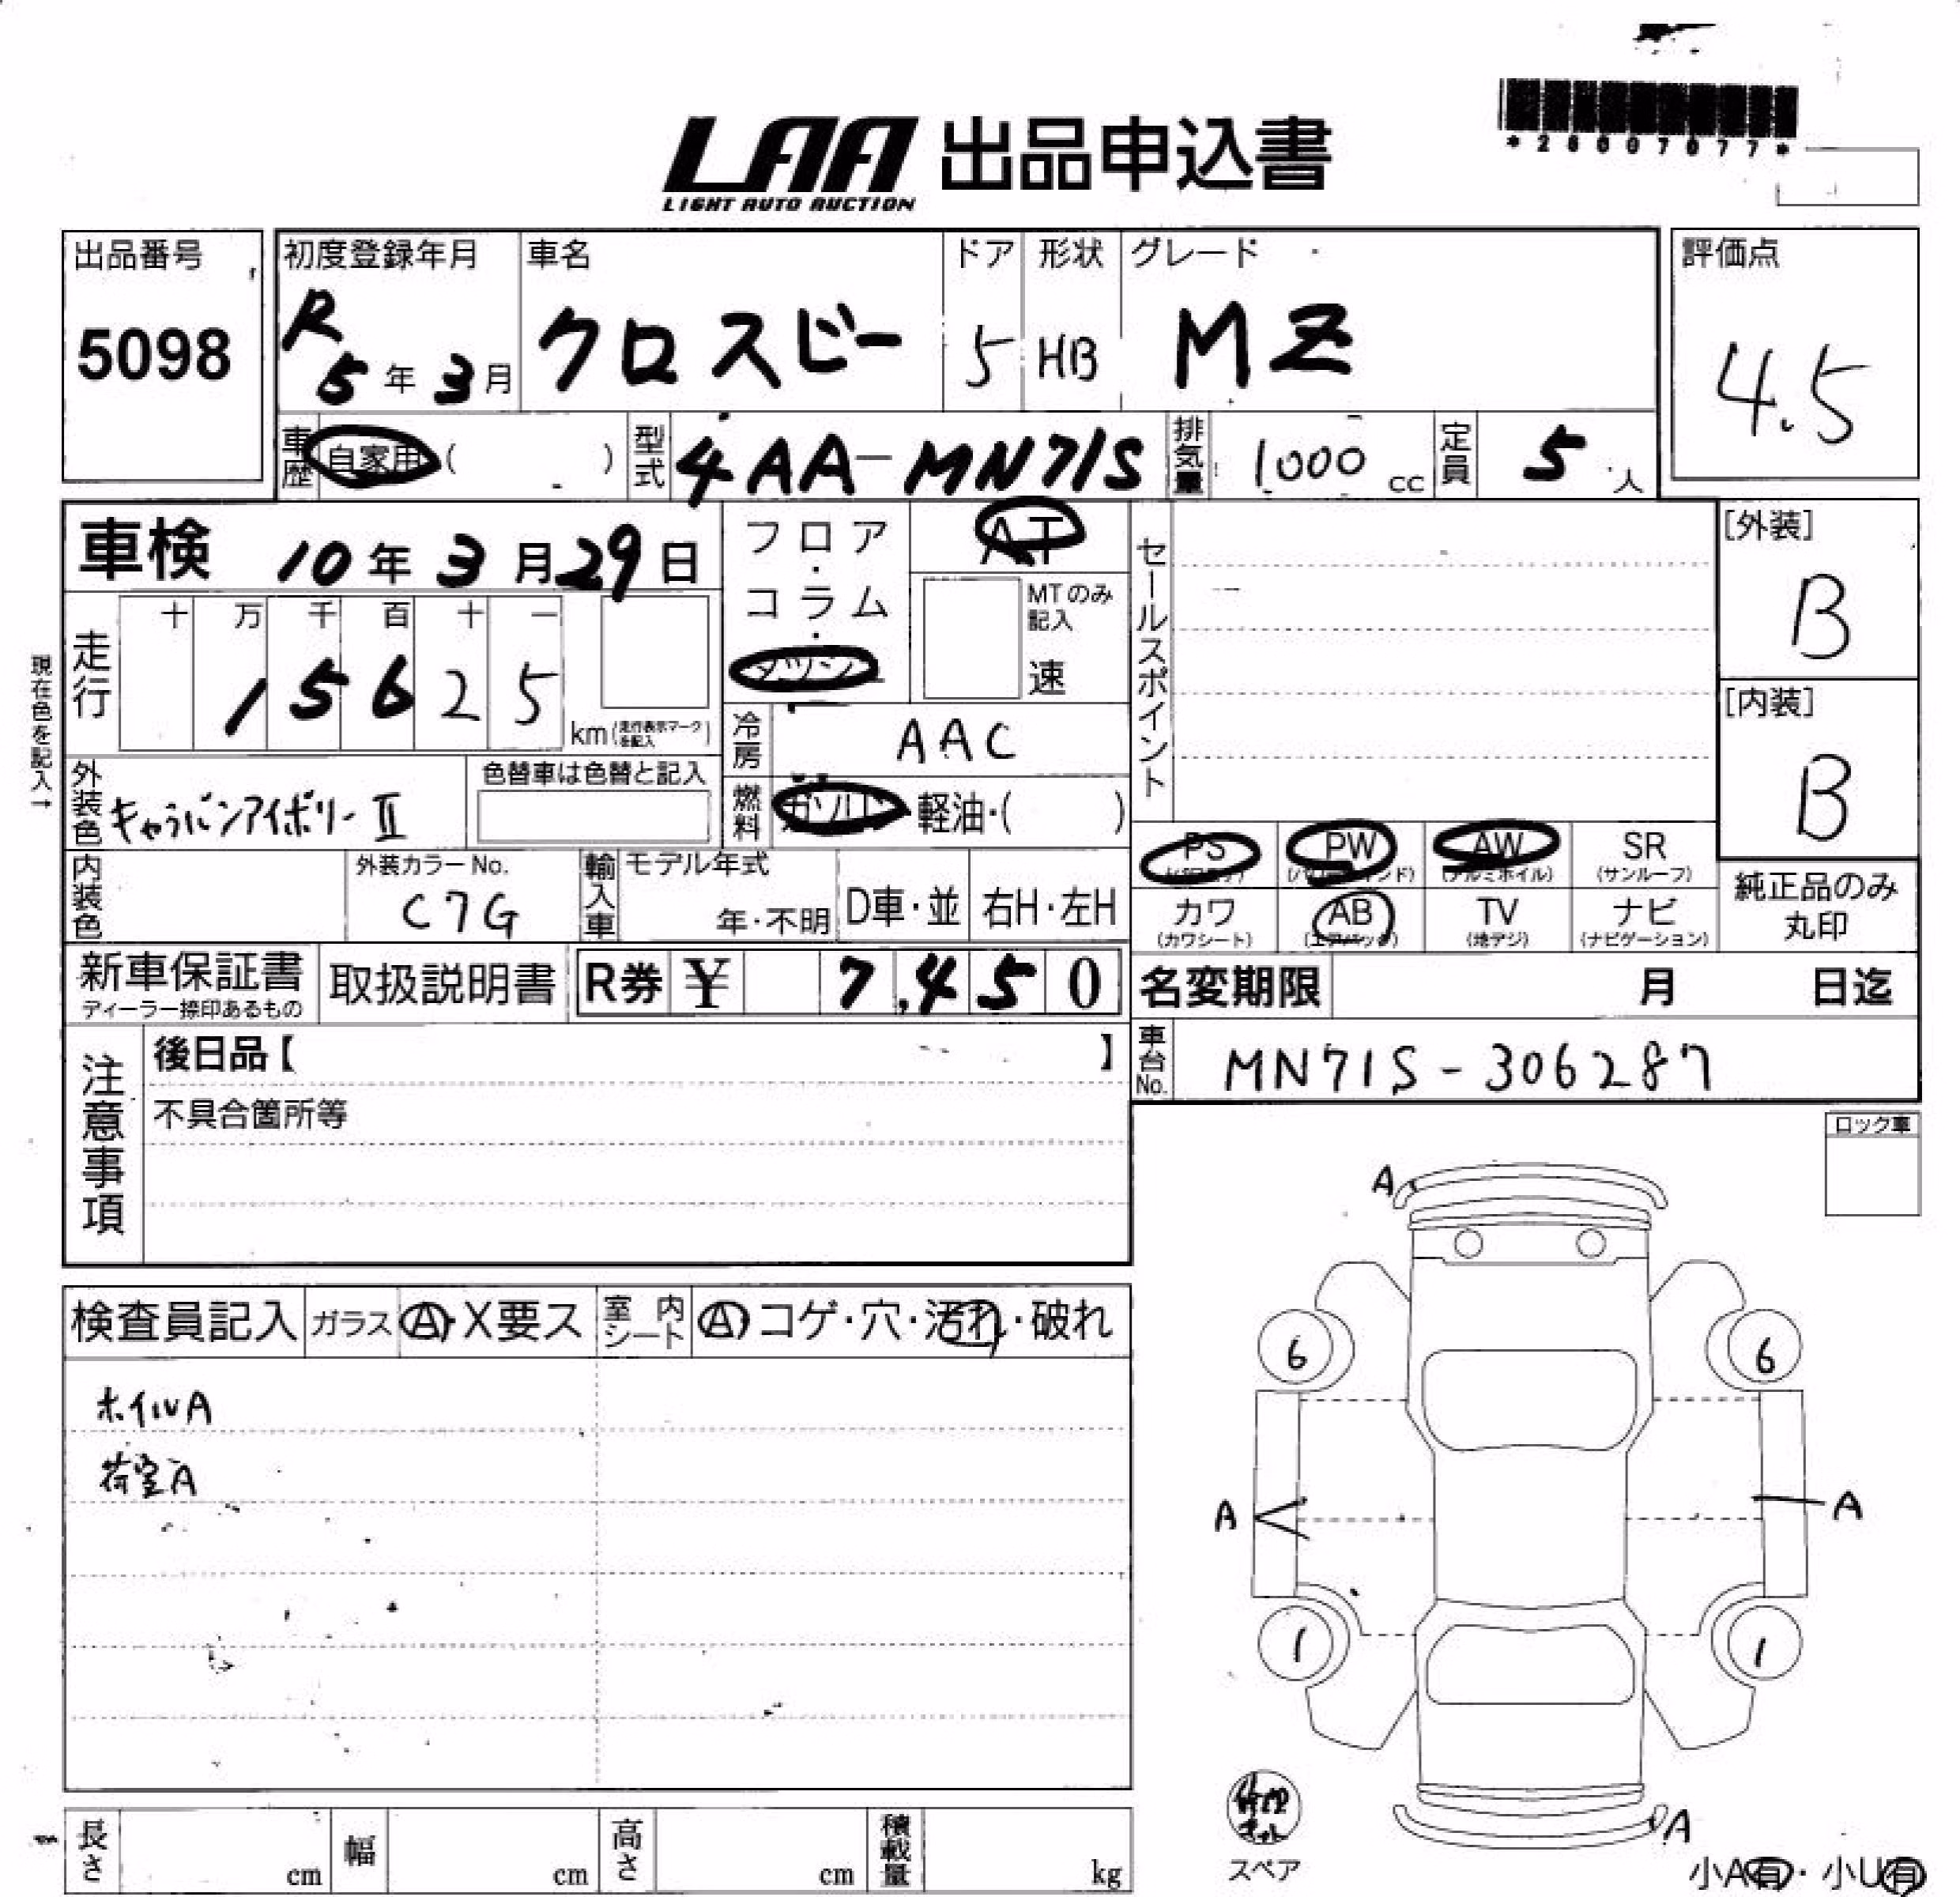 *28007077*
LAA 出品申込書
LIGHT AUTO AUCTION
出品番号 初度登録年月 車名 ドア 形状 グレード 評価点
5098 R 5年 3月 クロスビー 5 HB MZ 4.5
車歴 自家用 ( ) 型式 4AA-MN71S 排気量 1000 cc 定員 5 人
車検 10年 3月 29日 フロア・コラム・ダッシュ AT セールスポイント [外装]
B
MTのみ記入 速
現在色を記入→
走行 十 万 千 百 十 一
1 5 6 2 5 km (走行表示マークを記入)
[内装]
B
冷房 AAC
外装色 キャラバンアイボリーⅡ 色替車は色替と記入 燃料 ガソリン・軽油・( )
PS PW AW (アルミホイル) SR (サンルーフ)
内装色 外装カラーNo. C7G 輸入車 モデル年式 年・不明 D車・並 右H・左H
カワ (カワシート) AB (エアバッグ) TV (地デジ) ナビ (ナビゲーション) 純正品のみ丸印
新車保証書 ディーラー捺印あるもの 取扱説明書 R券 ¥ 7,450 名変期限 月 日迄
注意事項 後日品【 】 車台No. MN71S-306287
不具合箇所等
ロック車
検査員記入 ガラス A・X要ス 室内シート A コゲ・穴・汚れ・破れ
ホイルA
荷室A
A
6 6
A A
1 1
A
修理キット
スペア
小A有・小U有
長さ cm 幅 cm 高さ cm 積載量 kg